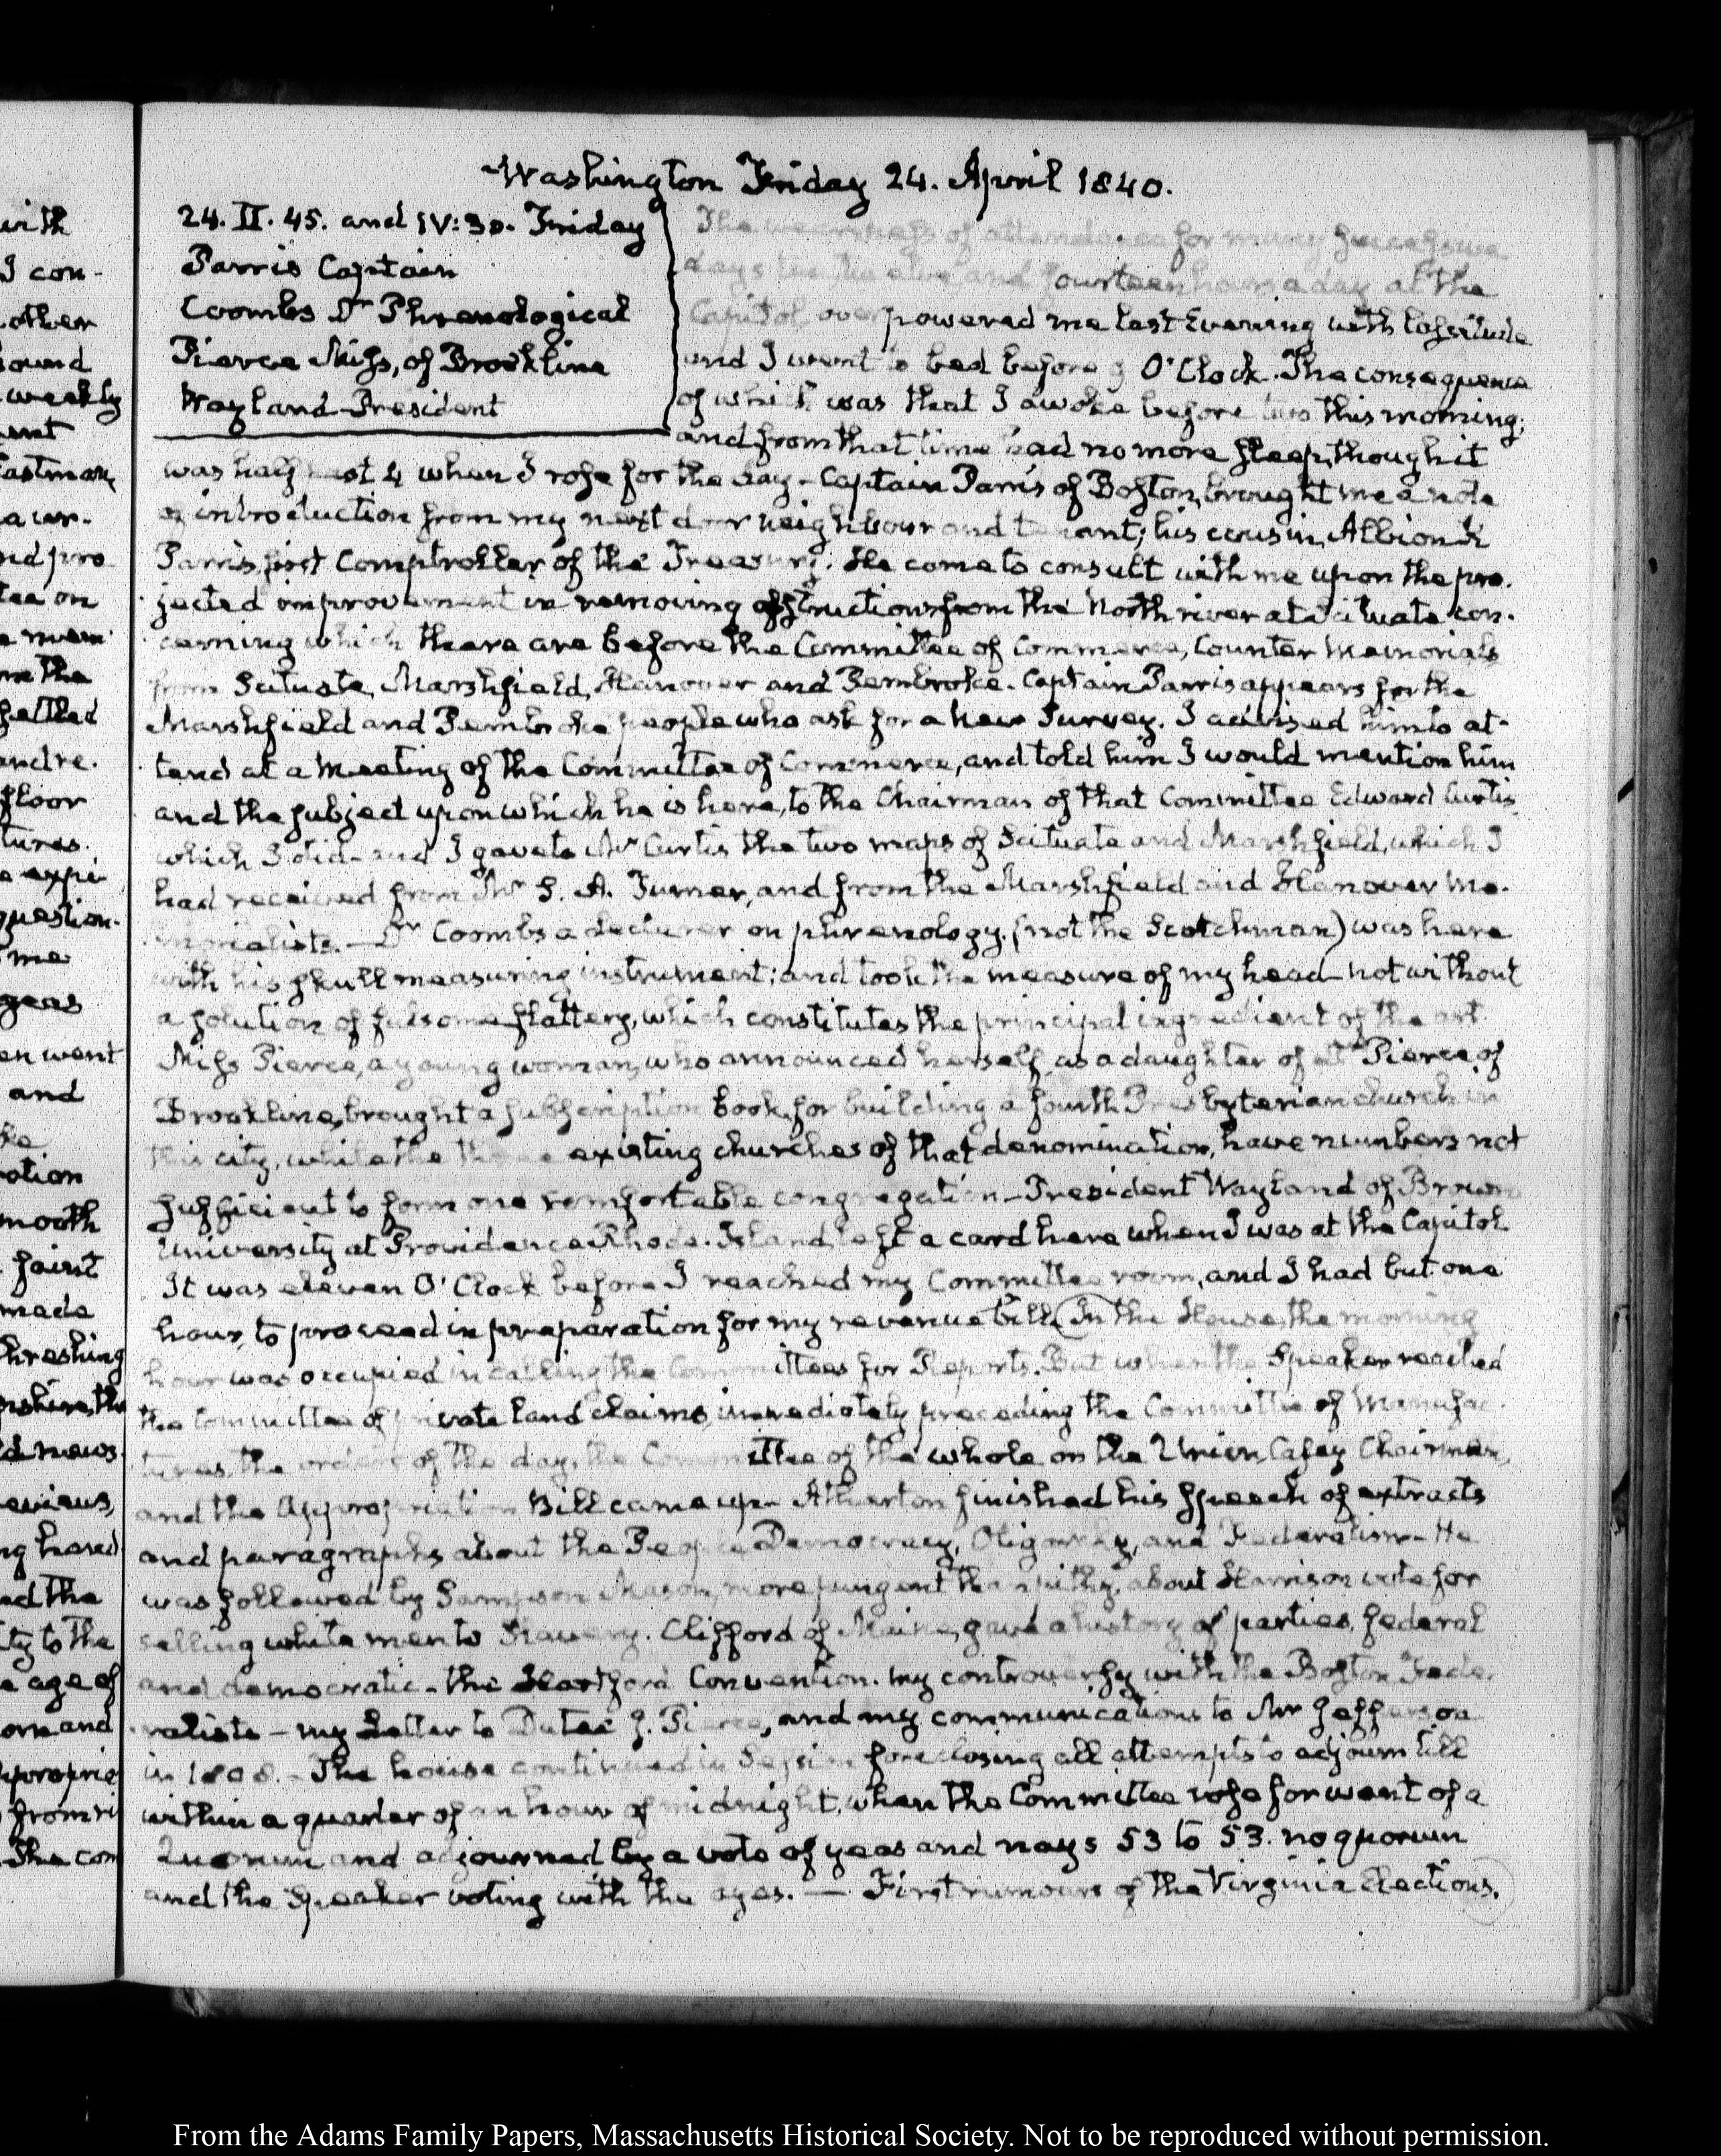 with
I con-
other
found
weekly
ent
Eastman,
a wr-
nd pro
tee on
me the
settled
and re-
floor
tures.
e expi
question-
me
geas
en went
and
otion
mouth
faint
made
threshing
rshire, the
d news.
evious,
ng hard
nd the
ity to the
e age of
orn and
from
The com
Washington Friday 24. April 1840.
24. II. 45. and IV:30. Friday
Parris Captain
Coombs Dr. Phrenological
Pierce Miss, of Brookline
Wayland President
The weariness of attendance for many successive
days twelve and fourteen hours a day at the
Capitol, overpowered me last Evening with lassitude
and I went to bed before 9 O'Clock. The consequence
of which was that I awoke before two this morning;
and from that time had no more sleep, though it
was half past 4 when I rose for the day - Captain Parris of Boston, brought me a note
of introduction from my next door neighbour and tenant; his cousin, Albion K
Parris, first Comptroller of the Treasury. He come to consult with me upon the pro-
jected improvement in removing obstructions from the North river at Scituate con-
cerning which there are before the Committee of Commerce, Counter Memorials
from Scituate, Marshfield, Hanover and Pembroke. Captain Parris appears for the
Marshfield and Pembroke people who ask for a new Survey. I advised him to at-
tend at a meeting of the Committee of Commerce, and told him I would mention him
and the subject upon which he is here, to the Chairman of that Committee Edward Curtis
which I did - and I gave to Mr Curtis the two maps of Scituate and Marshfield, which I
had received from Mr S. A. Turner, and from the Marshfield and Hanover Me-
morialists. — Dr Coombs a lecturer on phrenology, (not the Scotchman) was here
with his skull measuring instrument; and took the measure of my head - not without
a solution of fulsome flattery, which constitutes the principal ingredient of the art.
Miss Pierce, a young woman, who announced herself as a daughter of Mr Pierce of
Brookline, brought a subscription book, for building a fourth Presbyterian church in
this city, while the three existing churches of that denomination, have numbers not
sufficient to form one comfortable congregation - President Wayland of Brown
University at Providence Rhode-Island, left a card here when I was at the Capitol
It was eleven O'Clock before I reached my Committee room, and I had but one
hour, to proceed in preparation for my revenue bill. In the House, the morning
hour was occupied in calling the Committees for Reports. But when the Speaker reached
the Committee of private land claims, immediately preceding the Committee of Manufac-
tures, the orders of the day, the Committee of the whole on the Union, Casey Chairman,
and the Appropriation Bill came up - Atherton finished his speech of extracts
and paragraphs about the People Democracy, Oligarchy, and Federalism - He
was followed by Sampson Mason, more pungent than pithy, about Harrison vote for
selling white men to Slavery. Clifford of Maine, gave a history of parties, federal
and democratic - the Hartford Convention. my controversy with the Boston Fede-
ralists - my Letter to Dutee J. Pearce, and my communications to Mr Jefferson
in 1808. - The house continued in Session foreclosing all attempts to adjourn till
within a quarter of an hour of midnight, when the Committee rose for want of a
Quorum and adjourned by a vote of yeas and nays 53 to 53. no quorum
and the Speaker voting with the ayes. — First rumours of the Virginia Elections.
From the Adams Family Papers, Massachusetts Historical Society. Not to be reproduced without permission.